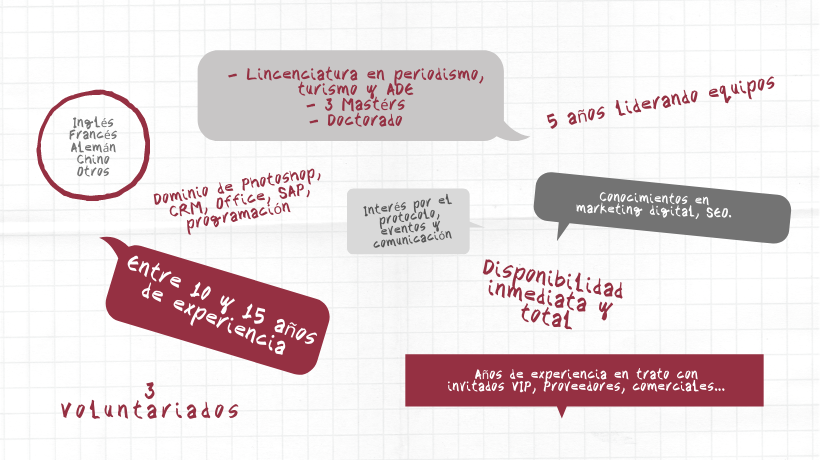 - Lincenciatura en periodismo,
turismo y ADE
- 3 Mastérs
- Doctorado
5 años liderando equipos
Inglés
Francés
Alemán
Chino
Otros
Dominio de Photoshop,
CRM, Office, SAP,
programación
Interés por el
protocolo,
eventos y
comunicación
Conocimientos en
marketing digital, SEO.
Entre 10 y 15 años
de experiencia
Disponibilidad
inmediata y
total
Años de experiencia en trato con
invitados VIP, Proveedores, comerciales...
3
voluntariados